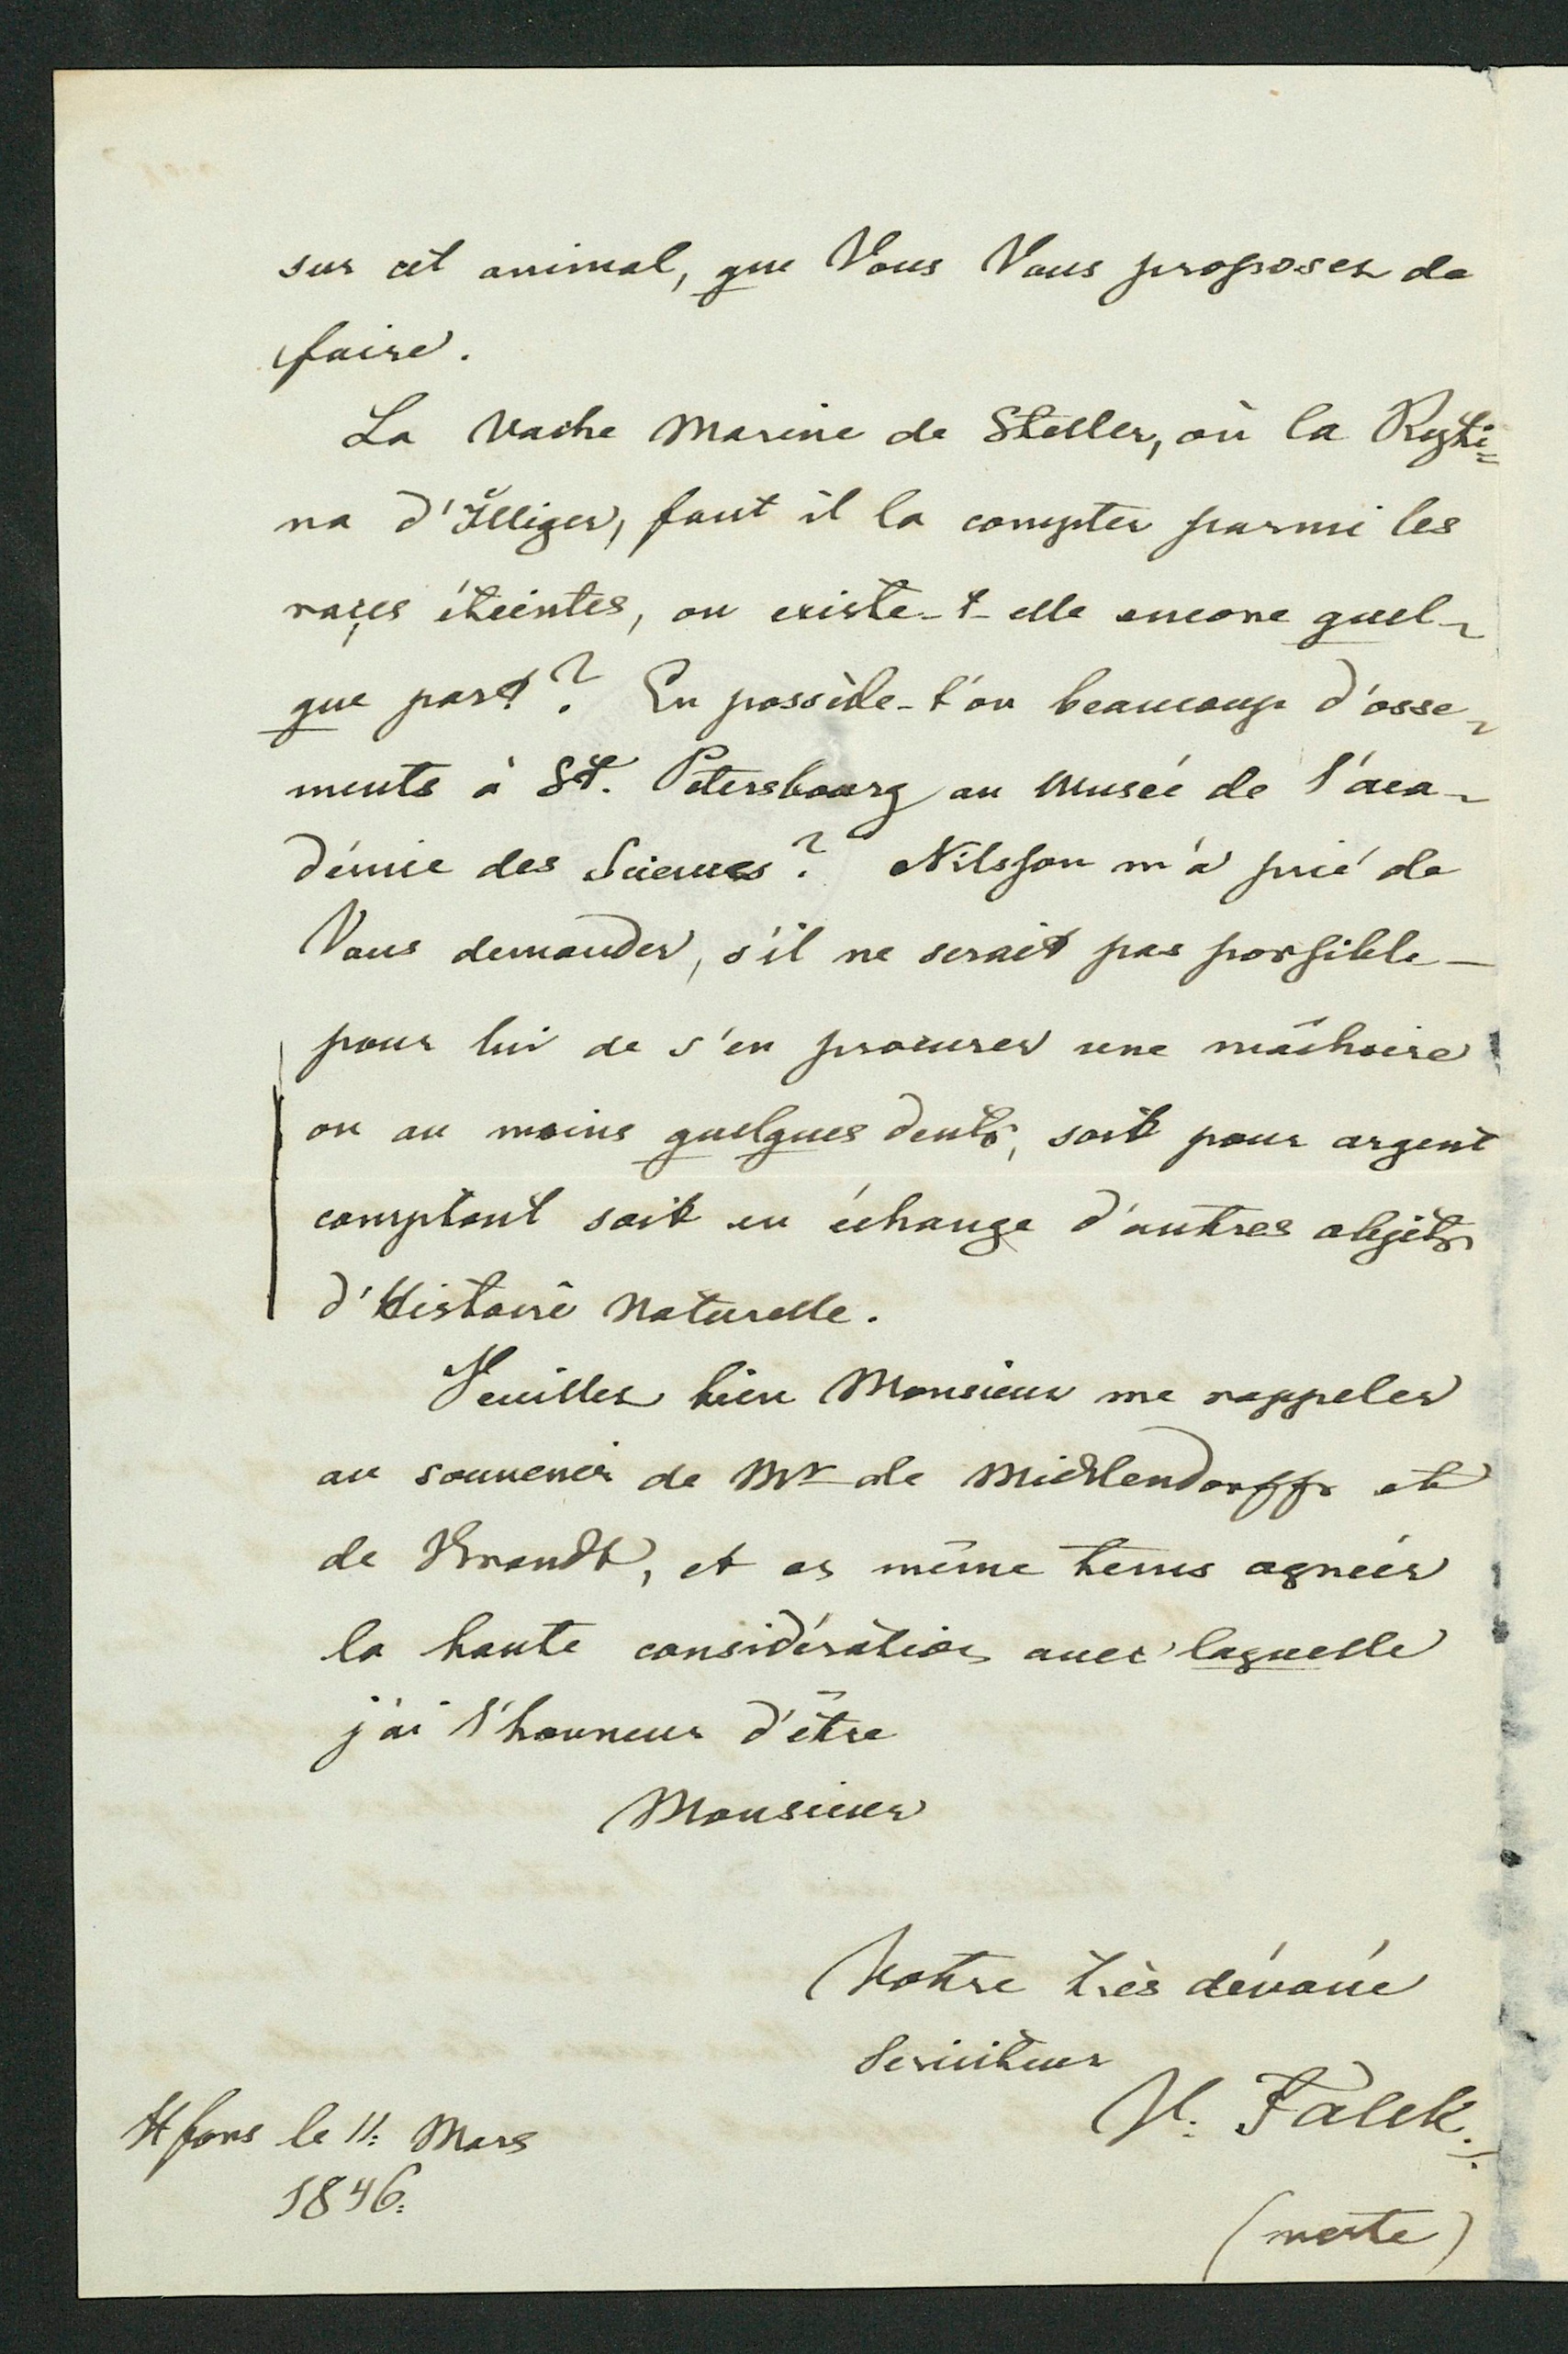 sur cèt animal, que Vous Vous proposez de
faire.
La vache marine de Steller, où la Rythi=
na d'Illiger, faut il la compter parmi les
raçes éteintes, ou existe-t-elle encore quel-
que part? En possède-t'on beaucoup d'osse-
ments à St. Petersbourg au Musée de l'aca-
démie des Sciences? Nilsson m'a prié de
Vous demander, s'il ne serait pas possible
pour lui de s'en procurer une mâchoire
ou au moins quelques dents, soit pour argent
comptant soit en échange d'autres objèts
d'Histoire Naturelle.
Veuillez bien Monsieur me rappeler
au souvenir de Mr de Middendorff et
de Brandt, et en même tems agréér
la haute considération avec laquelle
j'ai l'honneur d'être
Monsieur
Votre très dévoué
Serviteur
Falck.
H fors le 11: Mars
1846: